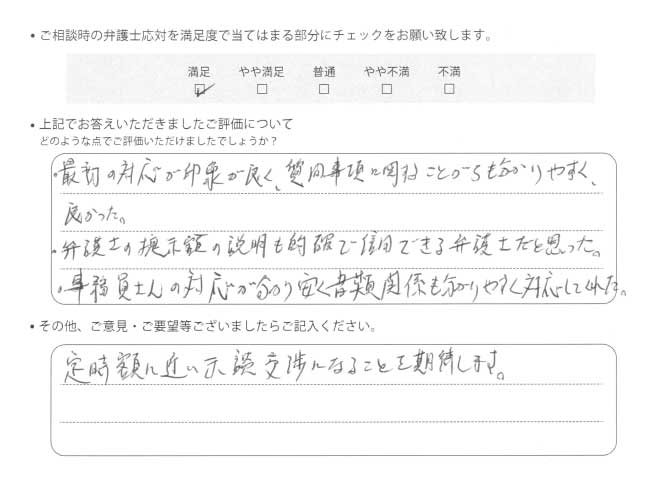 ・ご相談時の弁護士応対を満足度で当てはまる部分にチェックをお願い致します。
満足 やや満足 普通 やや不満 不満
・上記でお答えいただきましたご評価について
どのような点でご評価いただけましたでしょうか？
・最初の対応が印象が良く、質問事項に関わることがらも分かりやすく、
良かった。
・弁護士の提示額の説明も的確で信用できる弁護士だと思った。
・事務員さんの対応が分かり安く書類関係も分かりやすく対応してくれた。
・その他、ご意見・ご要望等ございましたらご記入ください。
定時額に近い示談交渉になることを期待します。